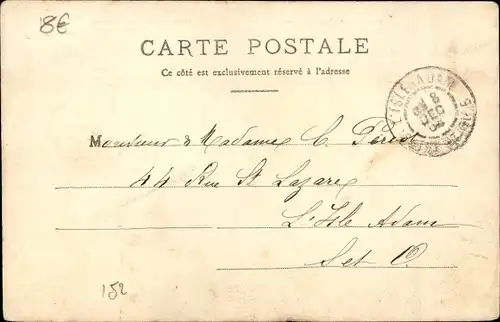 8€
CARTE POSTALE
Ce côté est exclusivement réservé à l'adresse
L'ISLE-ADAM
8
DEC
Monsieur & Madame C. Peret
44 Rue St Lazare
L'Isle Adam
Set O.
152